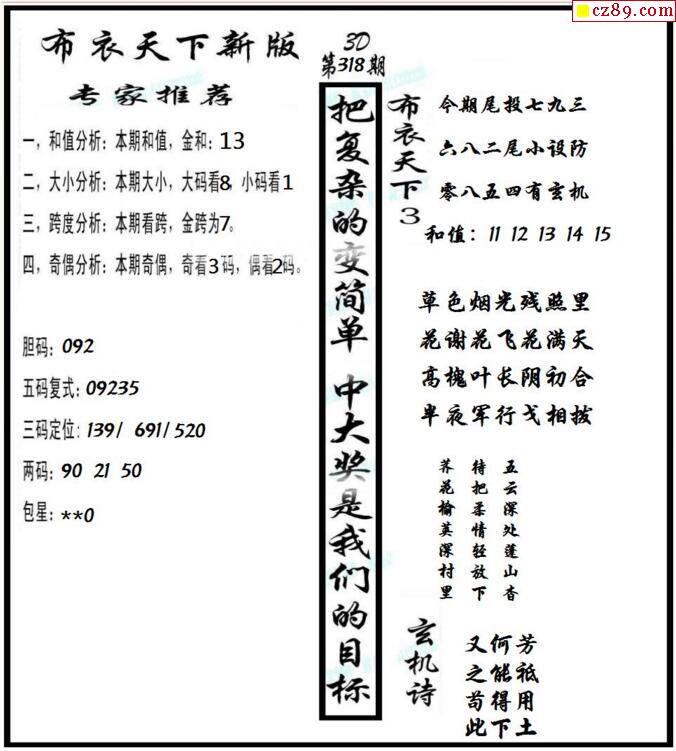 cz89.com
布衣天下新版
专家推荐
一，和值分析：本期和值，金和：13
二，大小分析：本期大小，大码看8，小码看1
三，跨度分析：本期看跨，金跨为7。
四，奇偶分析：本期奇偶，奇看3码，偶看2码。
胆码：092
五码复式：09235
三码定位：139/ 691/520
两码：90 21 50
包星：**0
3D
第318期
把复杂的变简单 中大奖是我们的目标
布衣天下3
今期尾投七九三
六八二尾小设防
零八五四有玄机
和值：11 12 13 14 15
草色烟光残照里
花谢花飞花满天
高槐叶长阴初合
半夜军行戈相拨
五云深处蓬山杳
待把柔情轻放下
荞花榆荚深村里
玄机诗
芳祗用土
何能得下
又之苟此